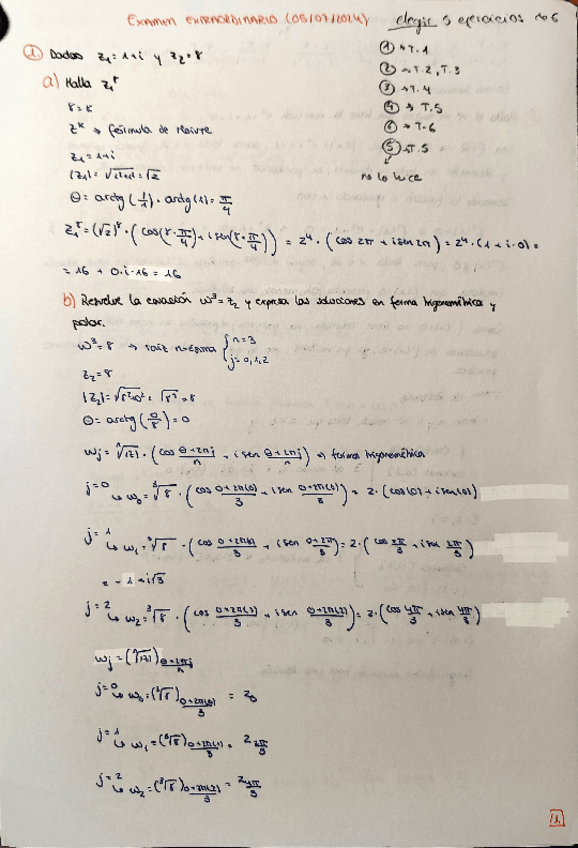 EXAMEN EXTRAORDINARIO (05/07/2024) elegir 5 ejercicios de 6
① Dados z₁=1+i y z₂=8
① → T.1
② → T.2, T.3
③ → T.4
④ → T.5
⑥ → T.6
⑤ → T.5
no lo hice
a) Halla z₁⁸
8=k
zᵏ → fórmula de Moivre
z₁=1+i
|z₁|=√1²+1²=√2
θ= arctg(1/1)= arctg(1)= π/4
z₁⁸=(√2)⁸·(cos(8·π/4)+isen(8·π/4)) = 2⁴·(cos 2π+isen2π)=2⁴·(1+i·0)=
= 16 + 0·i·16 = 16
b) Resuelve la ecuación ω³=z₂ y expresa las soluciones en forma trigonométrica y
polar.
ω³=8 → raíz n-ésima { n=3 j=0,1,2
z₂=8
|z₂|=√8²+0²=√8²=8
θ= arctg(0/8)=0
ωj=ⁿ√|z|·(cos θ+2πj/n + isen θ+2πj/n) → forma trigonométrica
j=0 ↳ ω₀=³√8·(cos 0+2π(0)/3 + isen 0+2π(0)/3)= 2·(cos(0)+isen(0))
j=1 ↳ ω₁=³√8·(cos 0+2π(1)/3 + isen 0+2π/3)=2·(cos 2π/3+isen 2π/3)
= -1+i√3
j=2 ↳ ω₂=³√8·(cos 0+2π(2)/3 + isen 0+2π(2)/3)=2·(cos 4π/3+isen 4π/3)
ωj=(ⁿ√|z|)θ+2πj/n
j=0 ↳ ω₀=(³√8)0+2π(0)/3 = 2₀
j=1 ↳ ω₁=(³√8)0+2π(1)/3 = 2 2π/3
j=2 ↳ ω₂=(³√8)0+2π(2)/3 = 2 4π/3
1.